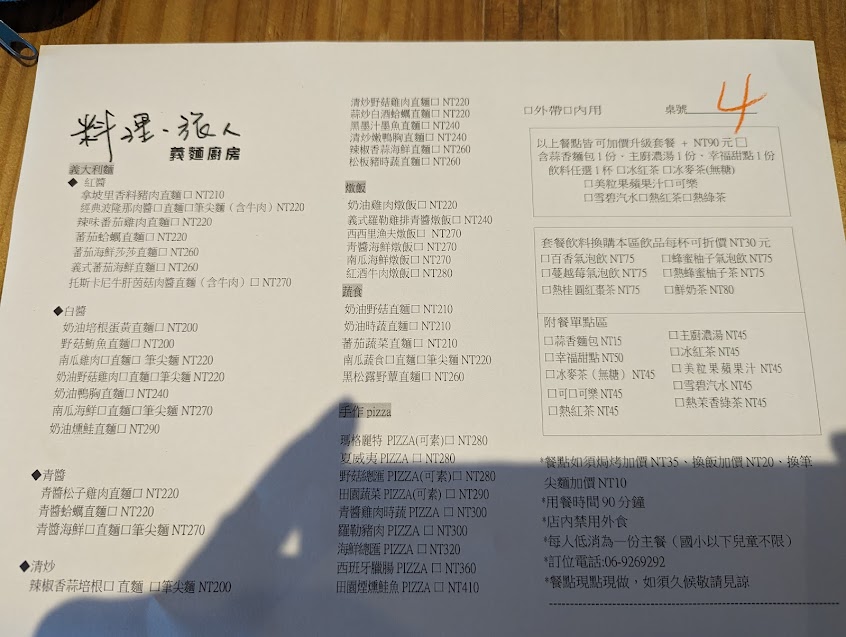 料理·旅人
義麵廚房
義大利麵
◆ 紅醬
拿坡里香料豬肉直麵☐ NT210
經典波隆那肉醬☐直麵☐筆尖麵（含牛肉）☐NT220
辣味番茄雞肉直麵☐ NT220
蕃茄蛤蠣直麵☐ NT220
蕃茄海鮮莎莎直麵☐ NT260
義式蕃茄海鮮直麵☐ NT260
托斯卡尼牛肝菌菇肉醬直麵（含牛肉）☐ NT270
◆白醬
奶油培根蛋黃直麵☐ NT200
野菇鮪魚直麵☐ NT200
南瓜雞肉☐直麵☐ 筆尖麵 NT220
奶油野菇雞肉☐直麵☐筆尖麵 NT220
奶油鴨胸直麵☐ NT240
南瓜海鮮☐直麵☐筆尖麵 NT270
奶油燻鮭直麵☐ NT290
◆青醬
青醬松子雞肉直麵☐ NT220
青醬蛤蠣直麵☐ NT220
青醬海鮮☐直麵☐筆尖麵 NT270
◆清炒
辣椒香蒜培根☐ 直麵 ☐筆尖麵 NT200
清炒野菇雞肉直麵☐ NT220
蒜炒白酒蛤蠣直麵☐ NT220
黑墨汁墨魚直麵☐ NT240
清炒嫩鴨胸直麵☐ NT240
辣椒香蒜海鮮直麵☐ NT260
松板豬時蔬直麵☐ NT260
燉飯
奶油雞肉燉飯☐ NT220
義式羅勒雞排青醬燉飯☐ NT240
西西里漁夫燉飯☐ NT270
青醬海鮮燉飯☐ NT270
南瓜海鮮燉飯☐ NT270
紅酒牛肉燉飯☐ NT280
蔬食
奶油野菇直麵☐ NT210
奶油時蔬直麵☐ NT210
蕃茄蔬菜直麵☐ NT210
南瓜蔬食☐直麵☐筆尖麵 NT220
黑松露野蕈直麵☐ NT260
手作 pizza
瑪格麗特 PIZZA(可素)☐ NT280
夏威夷 PIZZA ☐ NT280
野菇總匯 PIZZA(可素)☐ NT280
田園蔬菜 PIZZA(可素) ☐ NT290
青醬雞肉時蔬 PIZZA ☐ NT300
羅勒豬肉 PIZZA ☐ NT300
海鮮總匯 PIZZA ☐ NT320
西班牙臘腸 PIZZA ☐ NT360
田園煙燻鮭魚 PIZZA ☐ NT410
☐外帶☐內用 桌號 4
以上餐點皆可加價升級套餐 + NT90 元 ☐
含蒜香麵包 1 份、主廚濃湯 1 份、幸福甜點 1 份
飲料任選 1 杯 ☐冰紅茶 ☐冰麥茶(無糖)
☐美粒果蘋果汁☐可樂
☐雪碧汽水☐熱紅茶☐熱綠茶
套餐飲料換購本區飲品每杯可折價 NT30 元
☐百香氣泡飲 NT75 ☐蜂蜜柚子氣泡飲 NT75
☐蔓越莓氣泡飲 NT75 ☐熱蜂蜜柚子茶 NT75
☐熱桂圓紅棗茶 NT75 ☐鮮奶茶 NT80
附餐單點區
☐蒜香麵包 NT15 ☐主廚濃湯 NT45
☐幸福甜點 NT50 ☐冰紅茶 NT45
☐冰麥茶（無糖） NT45 ☐美粒果蘋果汁 NT45
☐可口可樂 NT45 ☐雪碧汽水 NT45
☐熱紅茶 NT45 ☐熱茉香綠茶 NT45
*餐點如須焗烤加價 NT35、換飯加價 NT20、換筆
尖麵加價 NT10
*用餐時間 90 分鐘
*店內禁用外食
*每人低消為一份主餐（國小以下兒童不限）
*訂位電話:06-9269292
*餐點現點現做，如須久候敬請見諒